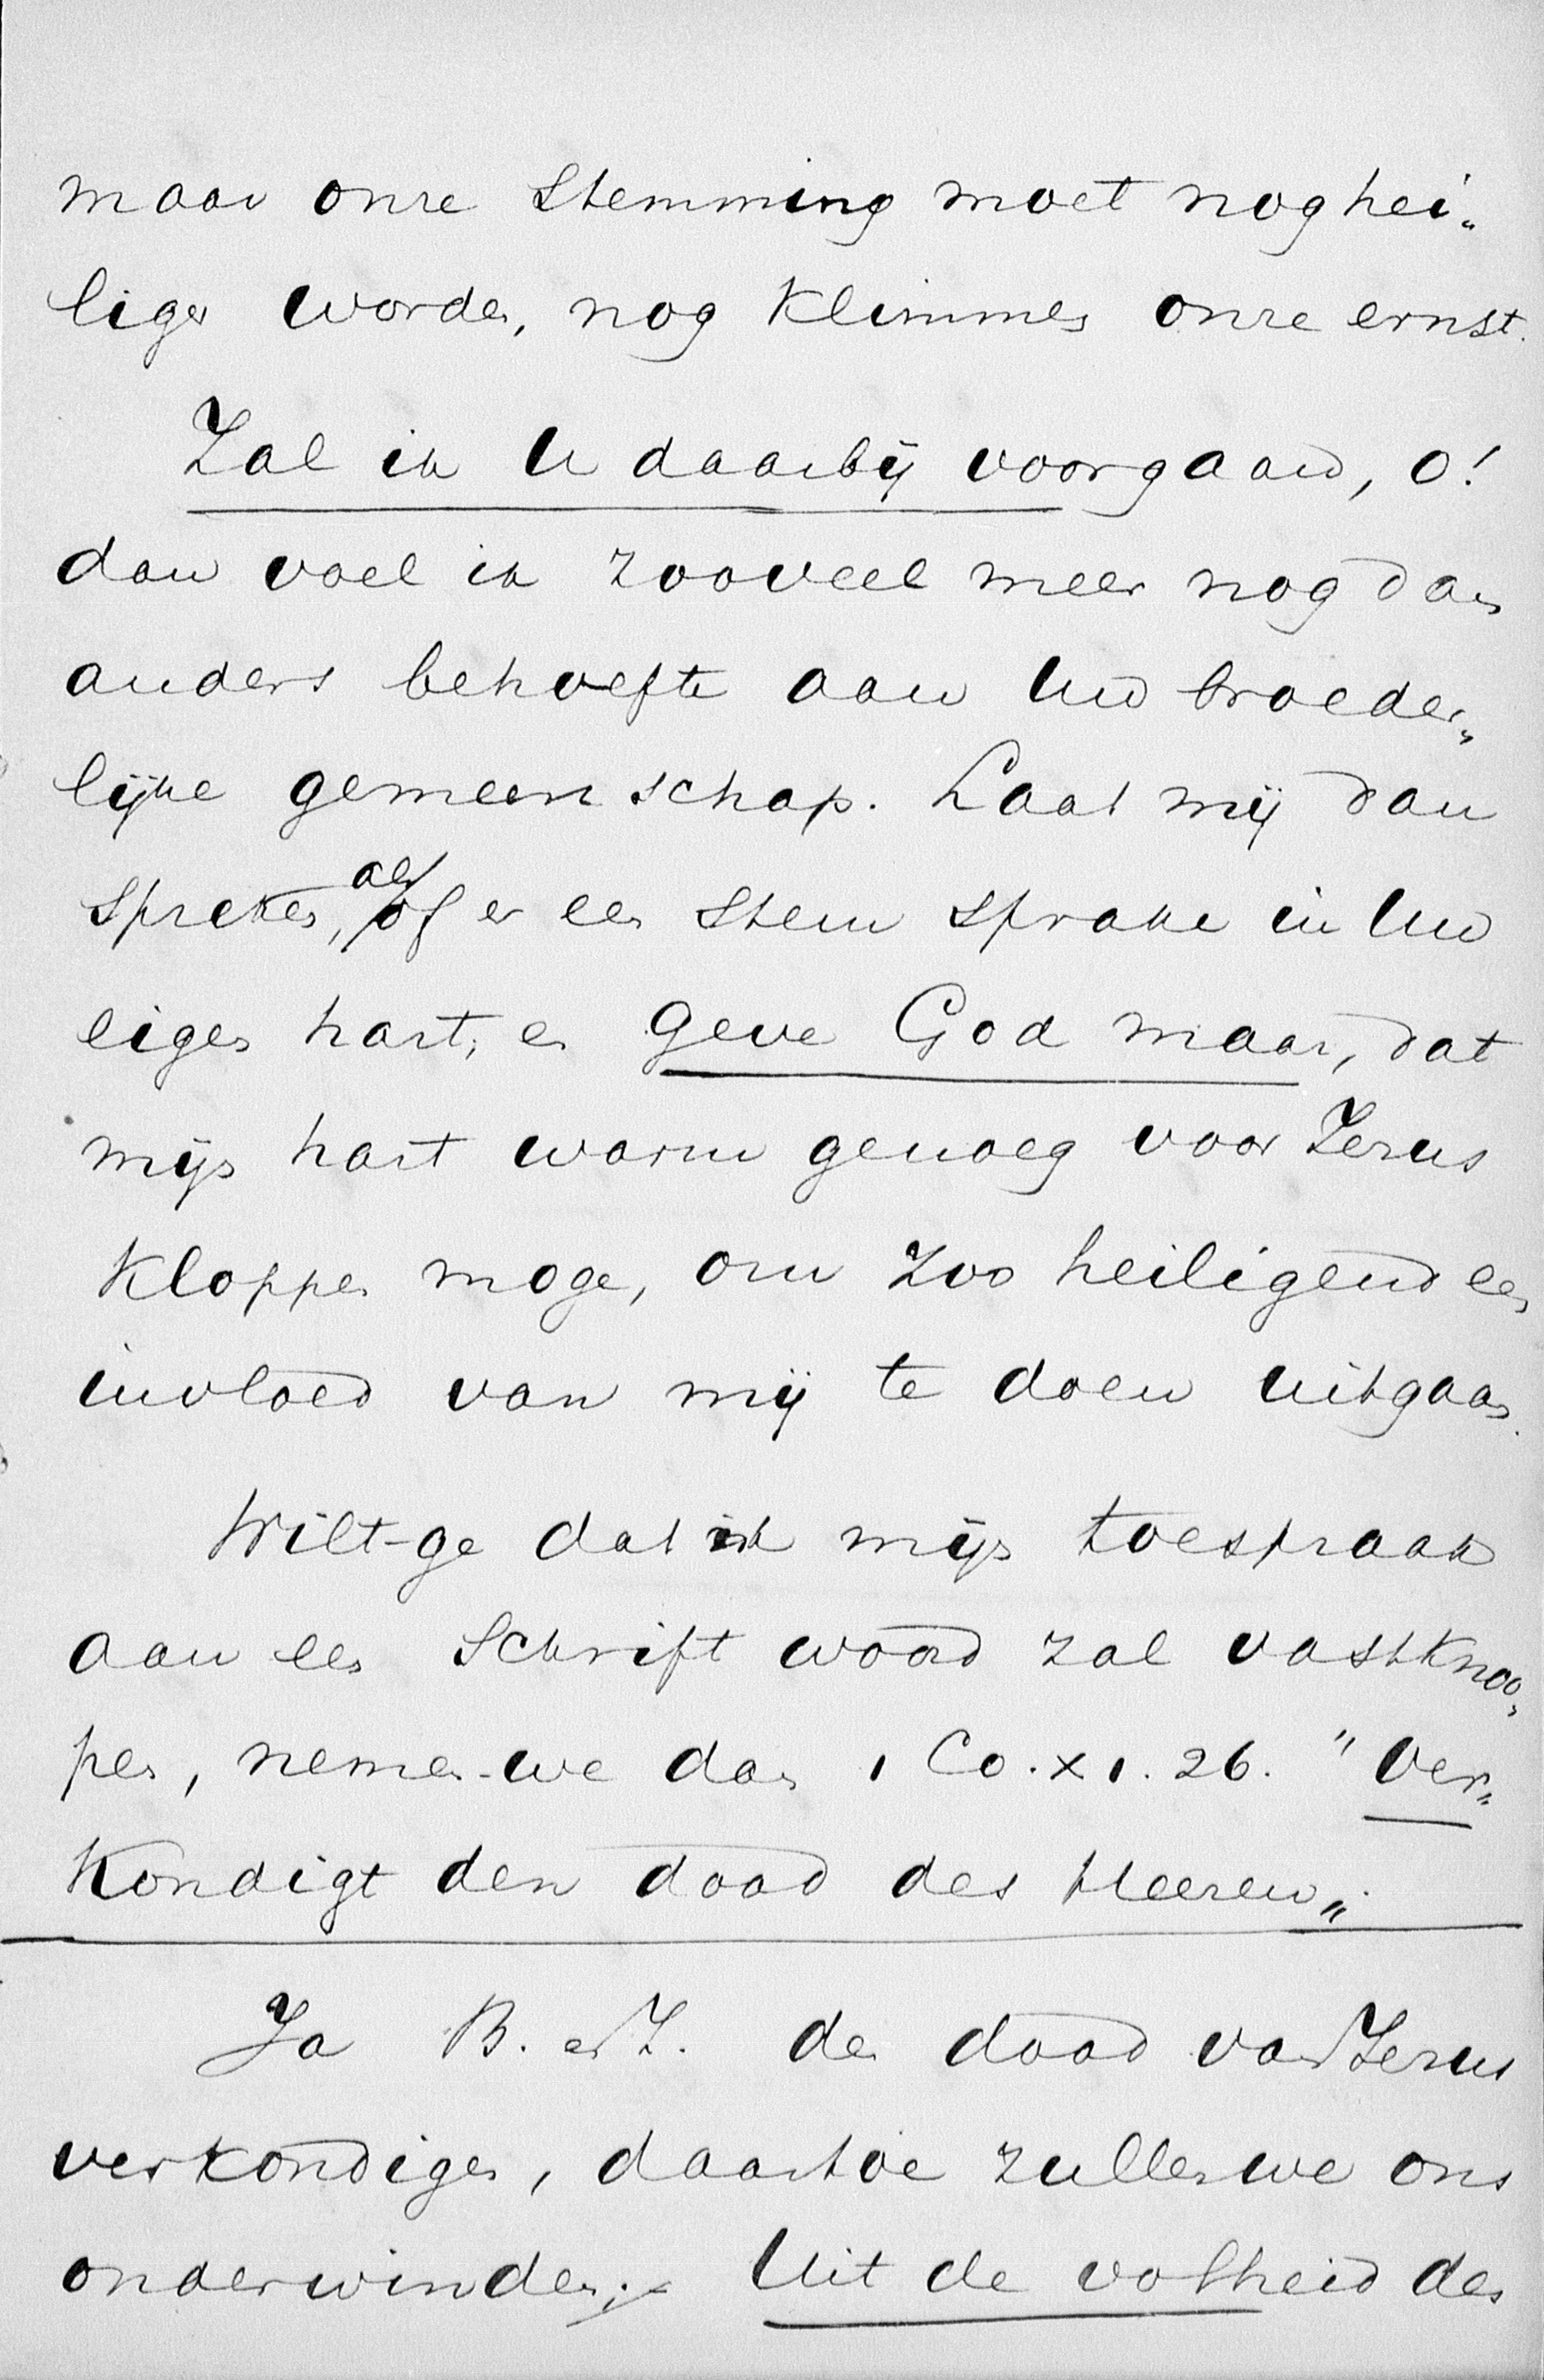 maar onze stemming moet nog hei„
liger worden, nog klimmen onze ernst.
Zal ik U daarbij voorgaan, o!
dan voel ik zooveel meer nog dan
anders behoefte aan Uw broeder„
lijke gemeenschap. Laat mij dan
spreken, als of er een stem sprake in Uw
eigen hart, en geve God maar, dat
mijn hart warm genoeg voor Jezus
kloppen moge, om zoo heiligend een
invloed van mij te doen uitgaan.
Wilt-ge dat ik mijn toespraak
aan een Schriftwoord zal vastknoo„
pen, nemen-we dan 1 Co. XI. 26. "Ver„
kondigt den dood des Heeren„.
Ja B. en Z. den dood van Jezus
verkondigen, daartoe zullen we ons
onderwinden; - Uit de volheid des